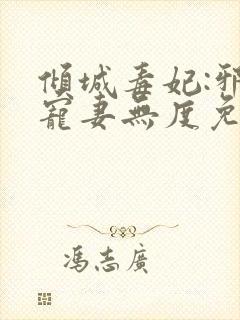 傾城毒妃:邪
寵妻無度免
馮志廣